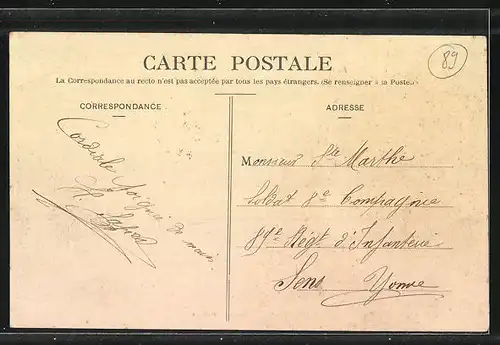 89
CARTE POSTALE
La Correspondance au recto n'est pas acceptée par tous les pays étrangers. (Se renseigner à la Poste.)
CORRESPONDANCE
Cordiale Poignée de main.
ADRESSE
Monsieur Ste Marthe
Soldat 8e Compagnie
89e Régt d'Infanterie
Sens Yonne